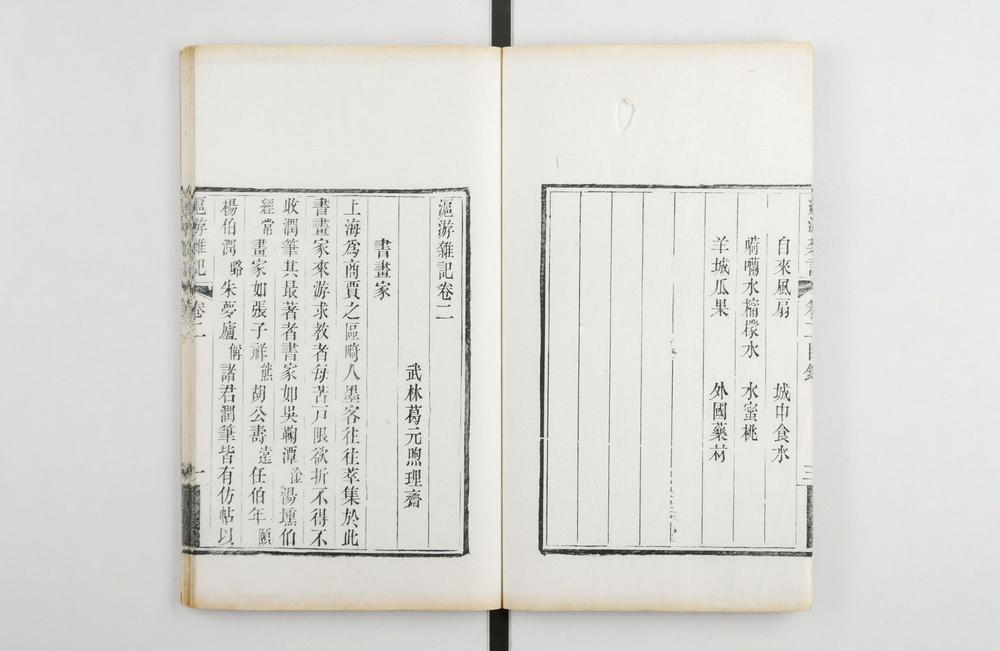 自來風扇　城中食水
荷蘭水檸檬水　水蜜桃
羊城瓜果　外國藥材
滬游雜記卷二
武林葛元煦理齋
書畫家
上海爲商賈之區畸人墨客往往萃集於此
書畫家來游求教者每苦戸限欲折不得不
收潤筆其最著者書家如吳鞠潭淦湯壎伯
經常畫家如張子祥熊胡公壽遠任伯年頤
楊伯潤璐朱夢廬偁諸君潤筆皆有仿帖以
滬游雜記
卷二
一